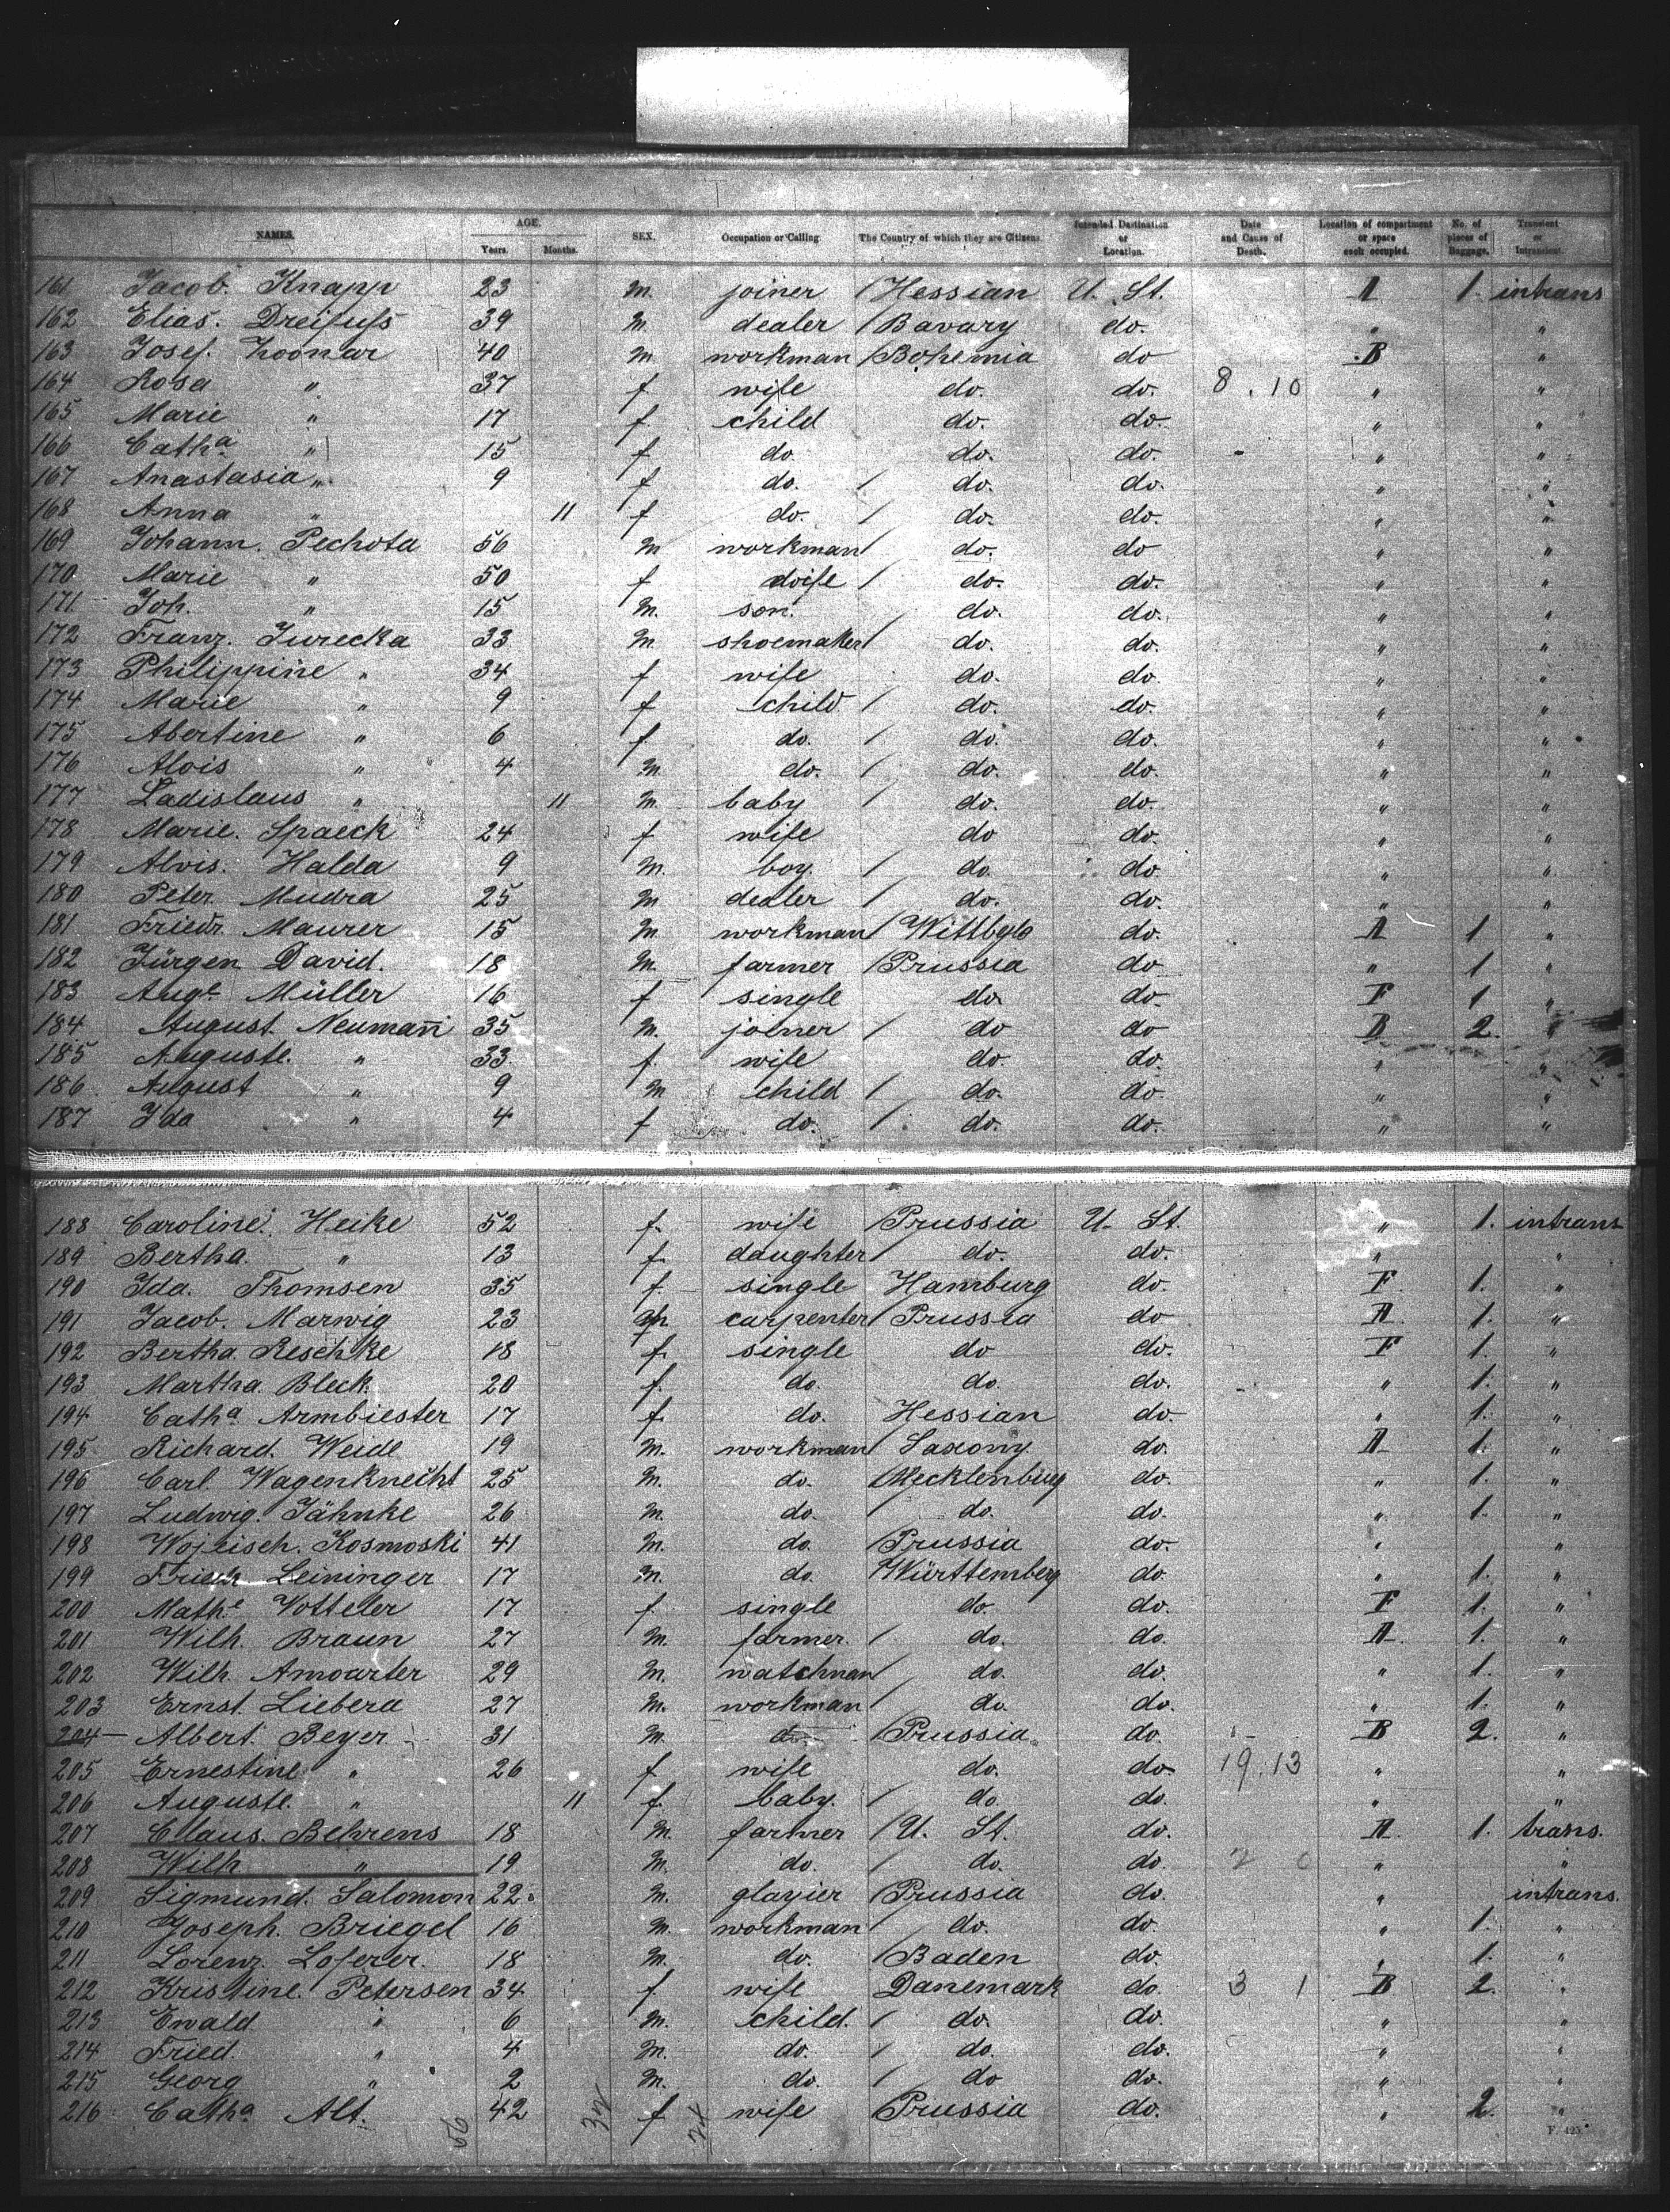 NAMES. AGE. Years. Months. SEX. Occupation or Calling. The Country of which they are Citizens. Intended Destination or Location. Date and Cause of Death. Location of compartment or space each occupied. No. of pieces of Baggage. Transient or Intransient.
161 Jacob. Knapp 23 m. joiner / Hessian U. St. A 1. intrans
162 Elias. Dreifuss 39 m. dealer / Bavary do. " "
163 Josef. 40 m workman / Bohemia do B "
164 Rosa " 37 f wife do. do. 8. 10 " "
165 Marie " 17 f child do. do. " "
166 Catha " 15 f do. do. do. " "
167 Anastasia " 9 f do. / do. do. " "
168 Anna " 11 f do. / do. do. " "
169 Johann. Pechota 56 m workman / do. do " "
170 Marie " 50 f wife / do. do. " "
171 Joh. " 15 m. son. do. do. " "
172 Franz. Jurecka 33 m. shoemaker / do. do. " "
173 Philippine " 34 f wife do. do. " "
174 Marie " 9 f child / do. do. " "
175 Abertine " 6 f do. / do. do. " "
176 Alois " 4 m. do. / do. do. " "
177 Ladislaus " 11 m. baby / do. do. " "
178 Marie. Spaeck 24 f wife do do. " "
179 Alois. Halda 9 m. boy. / do. do. " "
180 Peter. Mudra 25 m dealer / do. do. " "
181 Friedr. Maurer 15 m. workman / do. A 1 "
182 Jürgen David. 18 m. farmer / Prussia do " 1 "
183 Augte Müller 16 f single do do F 1 "
184 August. Neumann 35 m. joiner / do do B 2. "
185 Auguste. " 33 f. wife do. do. " "
186. August " 9 m child / do. do. " "
187 Ida " 4 f do. / do. do. " "
188 Caroline. Heike 52 f. wife / Prussia U. St. " 1. intrans
189 Bertha. " 13 f. daughter / do. do. " "
190 Ida. Thomsen 35 f single Hamburg do. F 1. "
191 Jacob. Marwig 23 m carpenter / Prussia do A 1. "
192 Bertha. Reschke 18 f. single do do. F 1. "
193 Martha. Bleck. 20 f. do. do. do. " 1. "
194 Catha Armbiester 17 f. do. Hessian do. " 1. "
195 Richard. Weide 19 m. workman / Saxony do. A 1. "
196 Carl. Wagenknecht 25 m. do. / Mecklenburg do. " 1. "
197 Ludwig. Jähnke 26 m. do. / do. do. " 1. "
198 Wojeisch. Kosmoski 41 m. do. / Prussia do. " "
199 Leininger 17 m. do. Württemberg do. " 1. "
200 Mathe Votteler 17 f. single do. do. F 1. "
201 Wilh. Braun 27 m. farmer. / do. do. A 1. "
202 Wilh. Amwarter 29 m. watchman / do. do. " 1. "
203 Ernst. Liebera 27 m. workman / do. do. " 1. "
204 Albert. Beyer 31 m. do / Prussia do. B 2. "
205 Ernestine " 26 f wife do. do 19. 13 " "
206 Auguste. " 11 f. baby. / do do. " "
207 Claus. Behrens 18 m. farmer / U. St. do. A 1. trans.
208 Wilh " 19 m. do. / do. do. 2 0 " "
209 Sigmund. Salomon 22. m. glazier / Prussia do. " intrans.
210 Joseph. Briegel 16 m. workman / do. do. " 1. "
211 Lorenz. Loferer. 18 m. do. / Baden do. " 1. "
212 Kristine. Petersen 34 f wife Danemark do. 3 1 B 2. "
213 Ewald " 6 m. child. / do. do. " "
214 Fried. " 4 m. do. / do. do. " "
215 Georg " 2 m. do. / do do. " "
216 Catha Alt. 42 f wife Prussia do. " 2. "
F. 425.